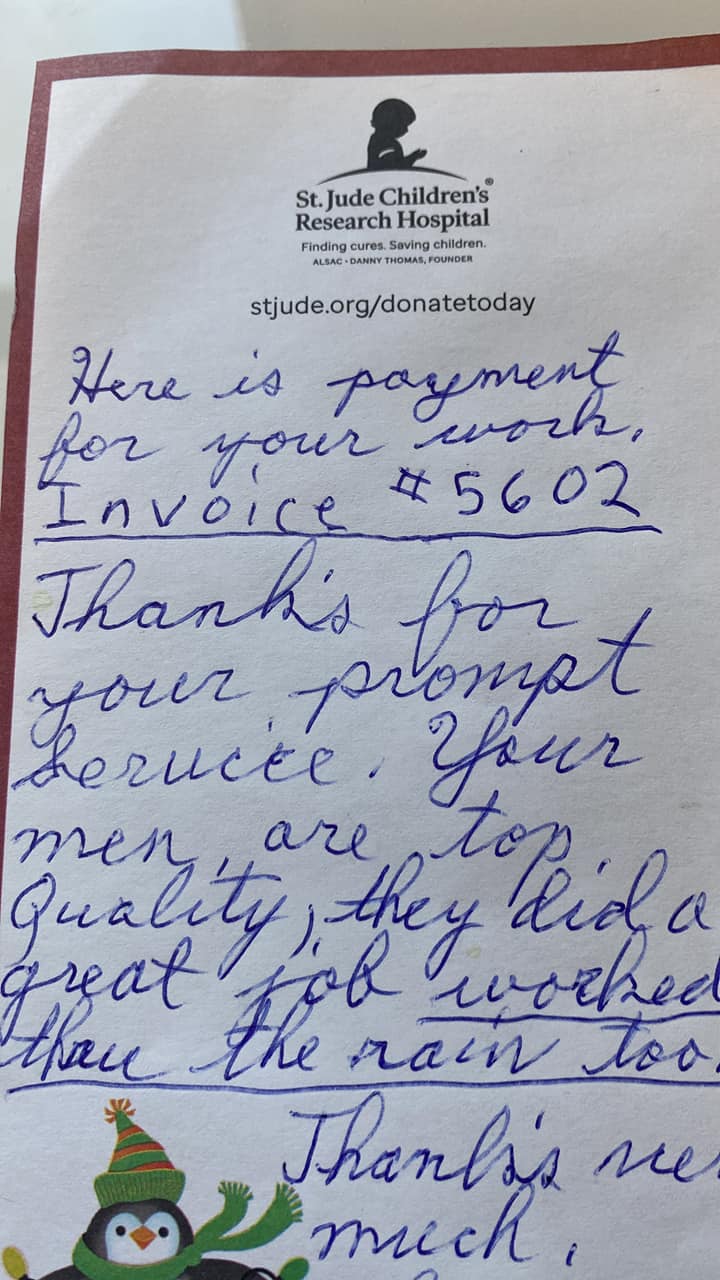 St. Jude Children's®
Research Hospital
Finding cures. Saving children.
ALSAC · DANNY THOMAS, FOUNDER
stjude.org/donatetoday
Here is payment
for your work.
Invoice #5602
Thank's for
your prompt
Service. Your
men, are top
Quality, they did a
great job worked
thru the rain too.
Thank's ve
much.